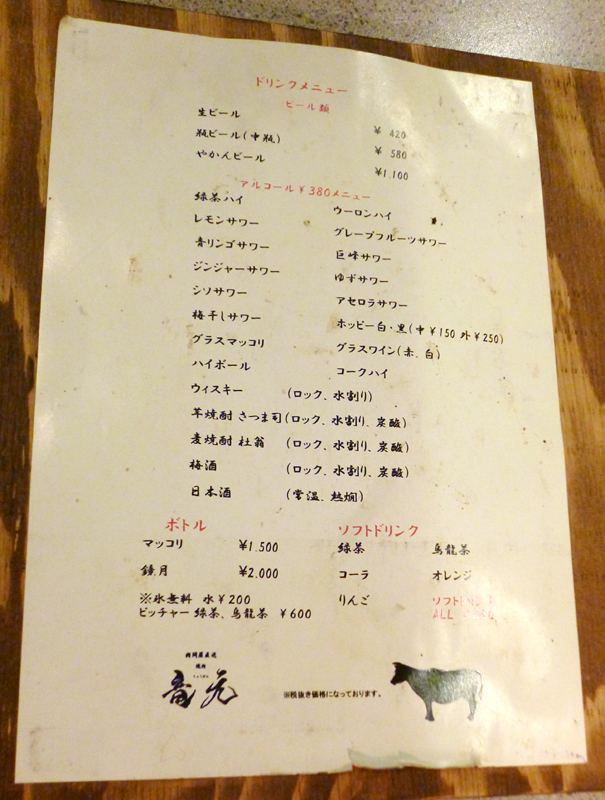 ドリンクメニュー
ビール類
生ビール ¥ 420
瓶ビール(中瓶) ¥ 580
やかんビール ¥1,100
アルコール¥380メニュー
緑茶ハイ ウーロンハイ
レモンサワー グレープフルーツサワー
青リンゴサワー 巨峰サワー
ジンジャーサワー ゆずサワー
シソサワー アセロラサワー
梅干しサワー ホッピー白・黒(中¥150 外¥250)
グラスマッコリ グラスワイン(赤、白)
ハイボール コークハイ
ウィスキー (ロック、水割り)
芋焼酎 さつま司(ロック、水割り、炭酸)
麦焼酎 杜翁 (ロック、水割り、炭酸)
梅酒 (ロック、水割り、炭酸)
日本酒 (常温、熱燗)
ボトル ソフトドリンク
マッコリ ¥1,500 緑茶 烏龍茶
鏡月 ¥2,000 コーラ オレンジ
※氷無料 水¥200 りんご ソフトドリンク
ピッチャー 緑茶、烏龍茶 ¥600 ALL
肉問屋直送
焼肉
竜元
※税抜き価格になっております。